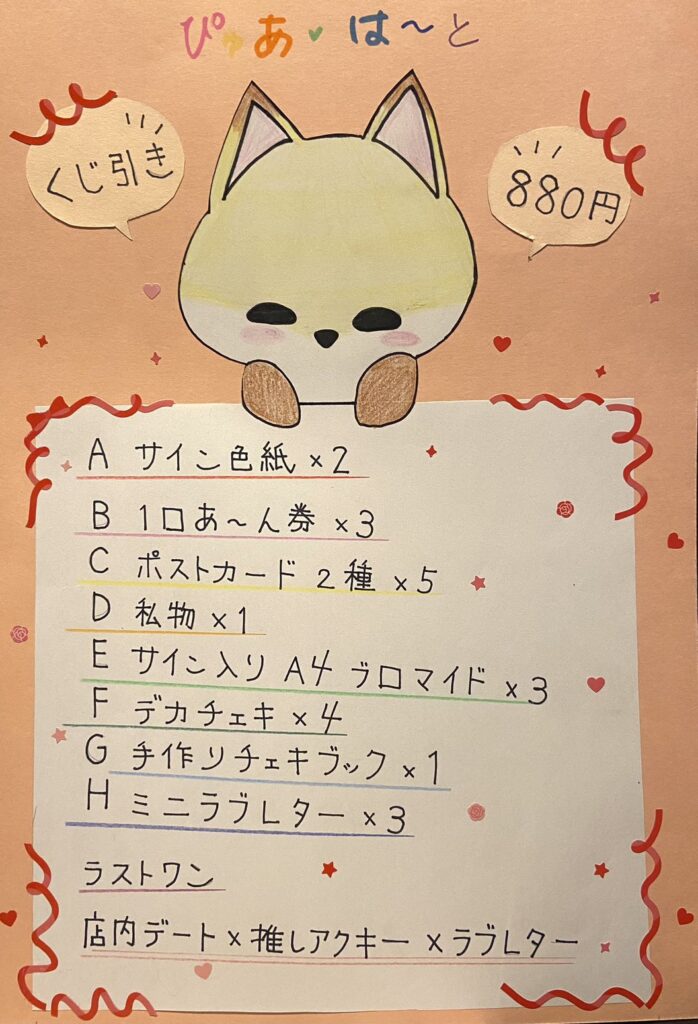 ぴゅあ♥は〜と
くじ引き
880円
A サイン色紙×2
B 1口あ〜ん券×3
C ポストカード 2種×5
D 私物×1
E サイン入り A4 ブロマイド×3
F デカチェキ×4
G 手作りチェキブック×1
H ミニラブレター×3
ラストワン
店内デート×推しアクキー×ラブレター